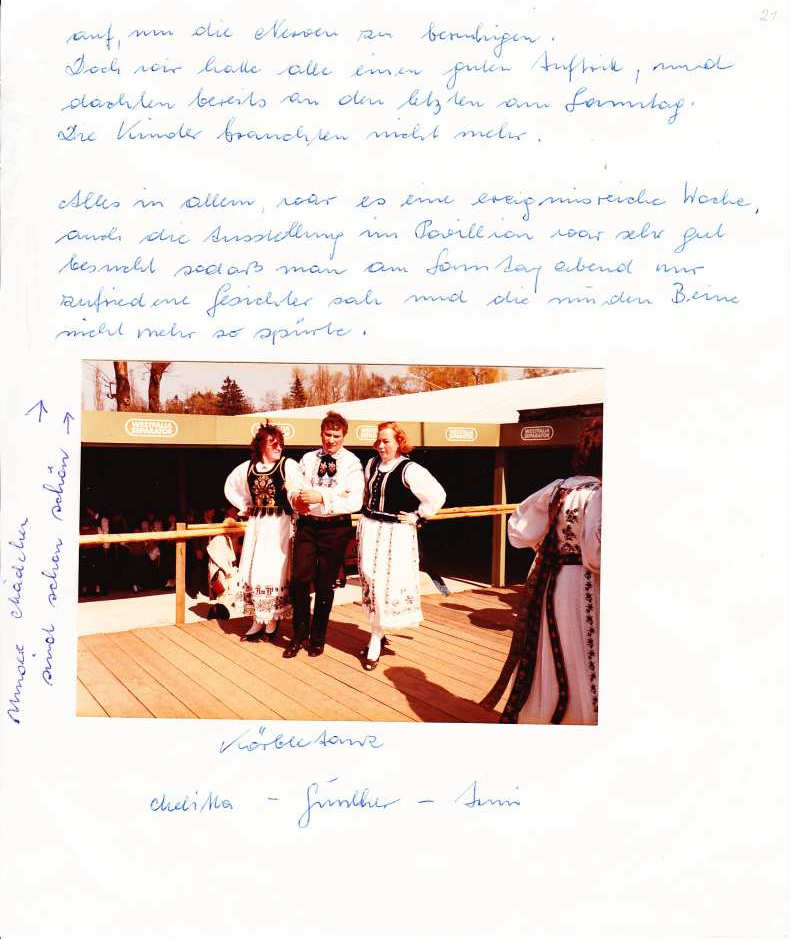 21
auf, um die Nerven zu beruhigen.
Doch wir hatte alle einen guten Auftritt, und
dachten bereits an den letzten am Samstag.
Die Kinder brauchten nicht mehr.
Alles in allem, war es eine ereignisreiche Woche,
auch die Ausstellung im Pavillion war sehr gut
besucht sodaß man am Samstag abend nur
zufriedene Gesichter sah und die müden Beine
nicht mehr so spürte.
Unsere Mädchen →
sind schon schön →
WESTFALIA SEPARATOR
WESTFALIA SEPARATOR
WESTFALIA SEPARATOR
WESTFALIA SEPARATOR
Melitta - Günther -